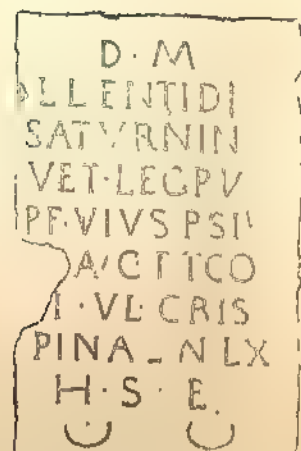 D · M
ALLENTIDI
SATVRNIN
VET · LEG PV
PF · VIVS PSI
A/CTTCO
I · VL CRIS
PINA _ N LX
H · S · E .